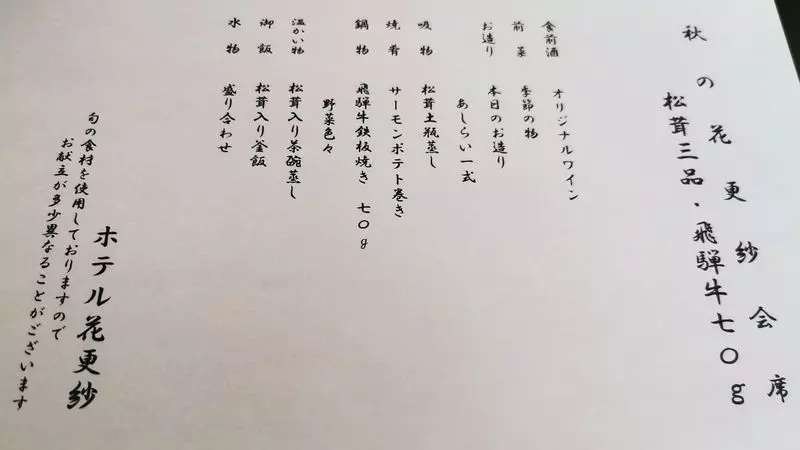 秋の花更紗会席
松茸三品・飛騨牛七〇g
食前酒 オリジナルワイン
前菜 季節の物
お造り 本日のお造り
あしらい一式
吸物 松茸土瓶蒸し
焼肴 サーモンポテト巻き
鍋物 飛騨牛鉄板焼き 七〇g
野菜色々
温かい物 松茸入り茶碗蒸し
御飯 松茸入り釜飯
水物 盛り合わせ
ホテル花更紗
旬の食材を使用しておりますので
お献立が多少異なることがございます